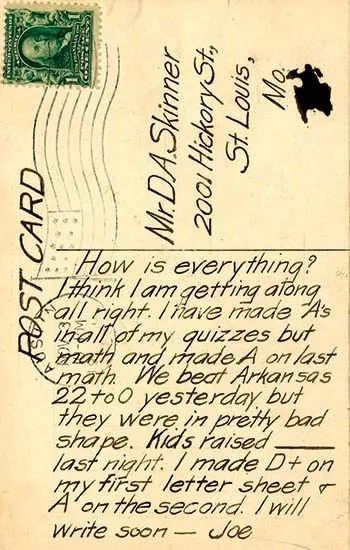 Mr. D.A. Skinner
2001 Hickory St.,
St. Louis,
Mo.
POST CARD
How is everything?
I think I am getting along
all right. I have made "A"s
in all of my quizzes but
math and made A on last
math. We beat Arkansas
22 to 0 yesterday but
they were in pretty bad
shape. Kids raised ____
last night. I made D+ on
my first letter sheet &
A on the second. I will
write soon — Joe